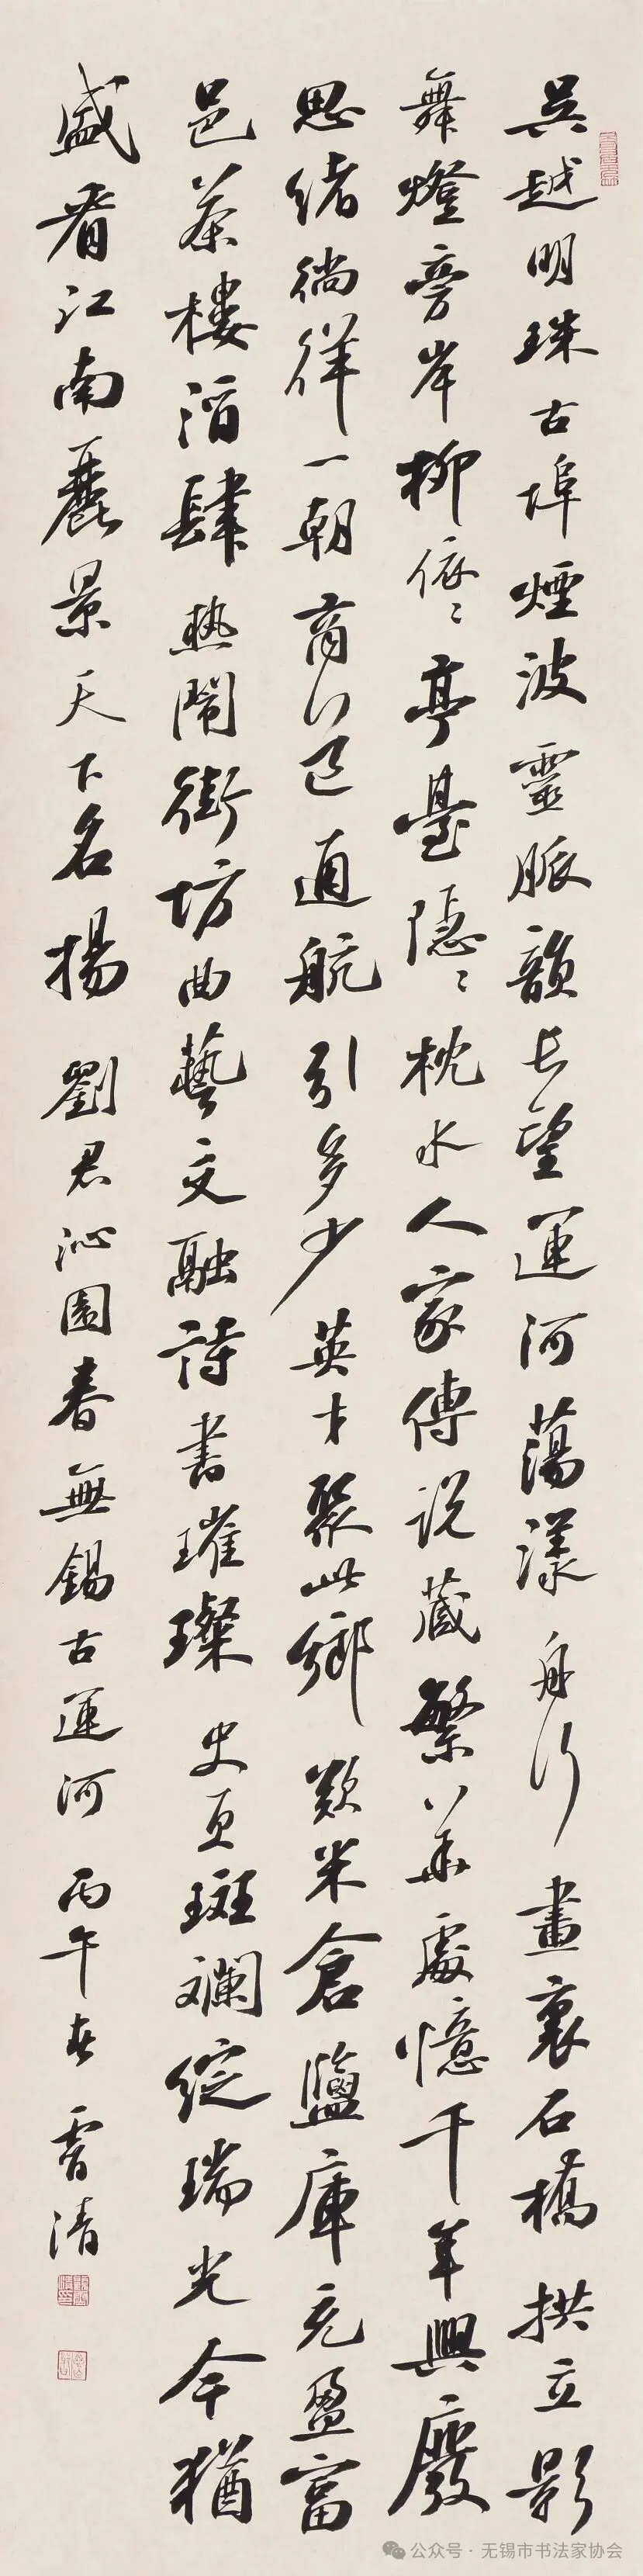 吳越明珠古埠煙波靈脈韻長望運河蕩漾舟行畫裏石橋拱立影
舞燈旁岸柳依〻亭臺隱〻枕水人家傳説藏繁華處憶千年興廢
思緒徜徉一朝商行已通航引多少英才聚此鄉歎米倉鹽庫充盈富
邑茶樓酒肆熱鬧街坊曲藝文融詩書璀璨史頁斑斕綻瑞光今猶
盛看江南麗景天下名揚 劉君沁園春無錫古運河 丙午春 霄清
公众号·无锡市书法家协会